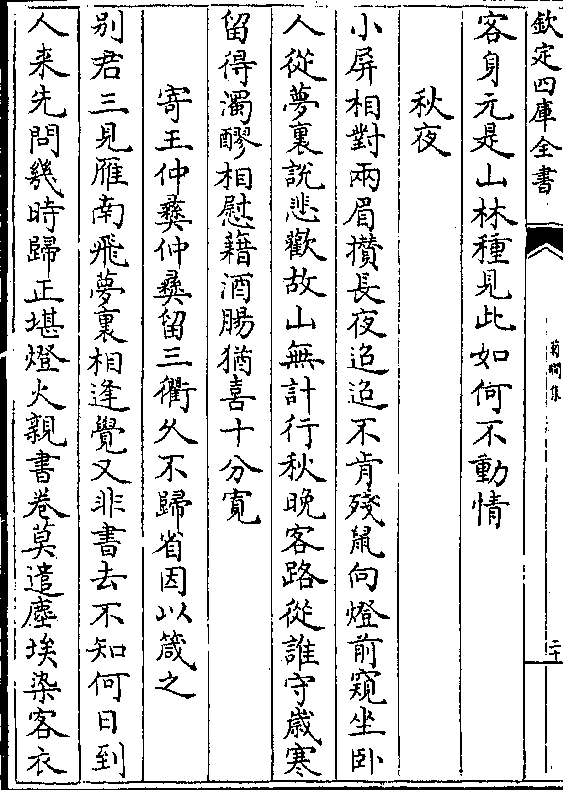 欽定四庫全書
菊磵集
二十
客身元是山林種見此如何不動情
秋夜
小屏相對兩眉攢長夜迢迢不肯殘鼠向燈前窺坐卧
人從夢裏說悲歡故山無計行秋晚客路從誰守歲寒
留得濁醪相慰藉酒腸猶喜十分寬
寄王仲彝仲彝留三衢久不歸省因以箴之
别君三見雁南飛夢裏相逢覺又非書去不知何日到
人来先問幾時歸正堪燈火親書卷莫遣塵埃染客衣